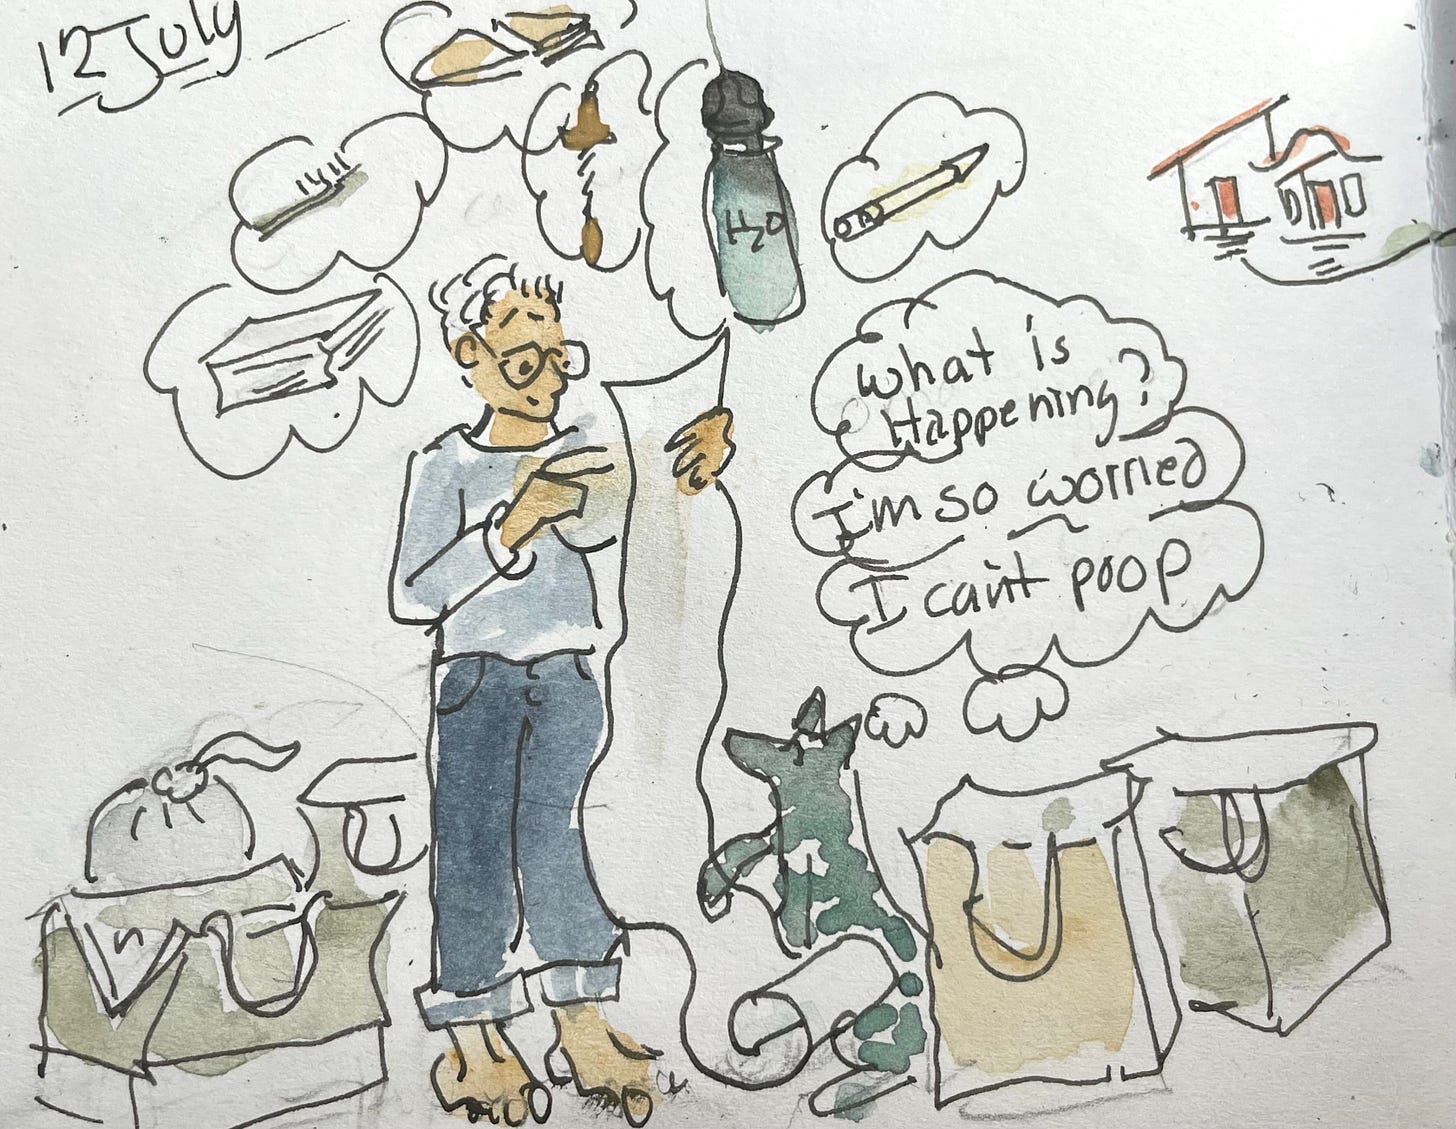 12 July
H2O
What is
Happening?
I'm so worried
I can't poop